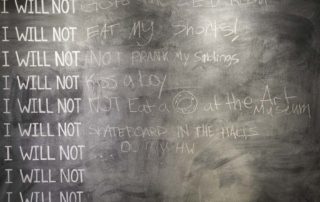 I WILL NOT
I WILL NOT EAT MY Shorts!
I WILL NOT NOT PRANK My Siblings
I WILL NOT Kiss a boy
I WILL NOT NOT Eat a ☺ at the Art Museum
I WILL NOT SKATEBOARD IN THE HALLS
I WILL NOT ... DO MY HW
I WILL NOT
I WILL NOT